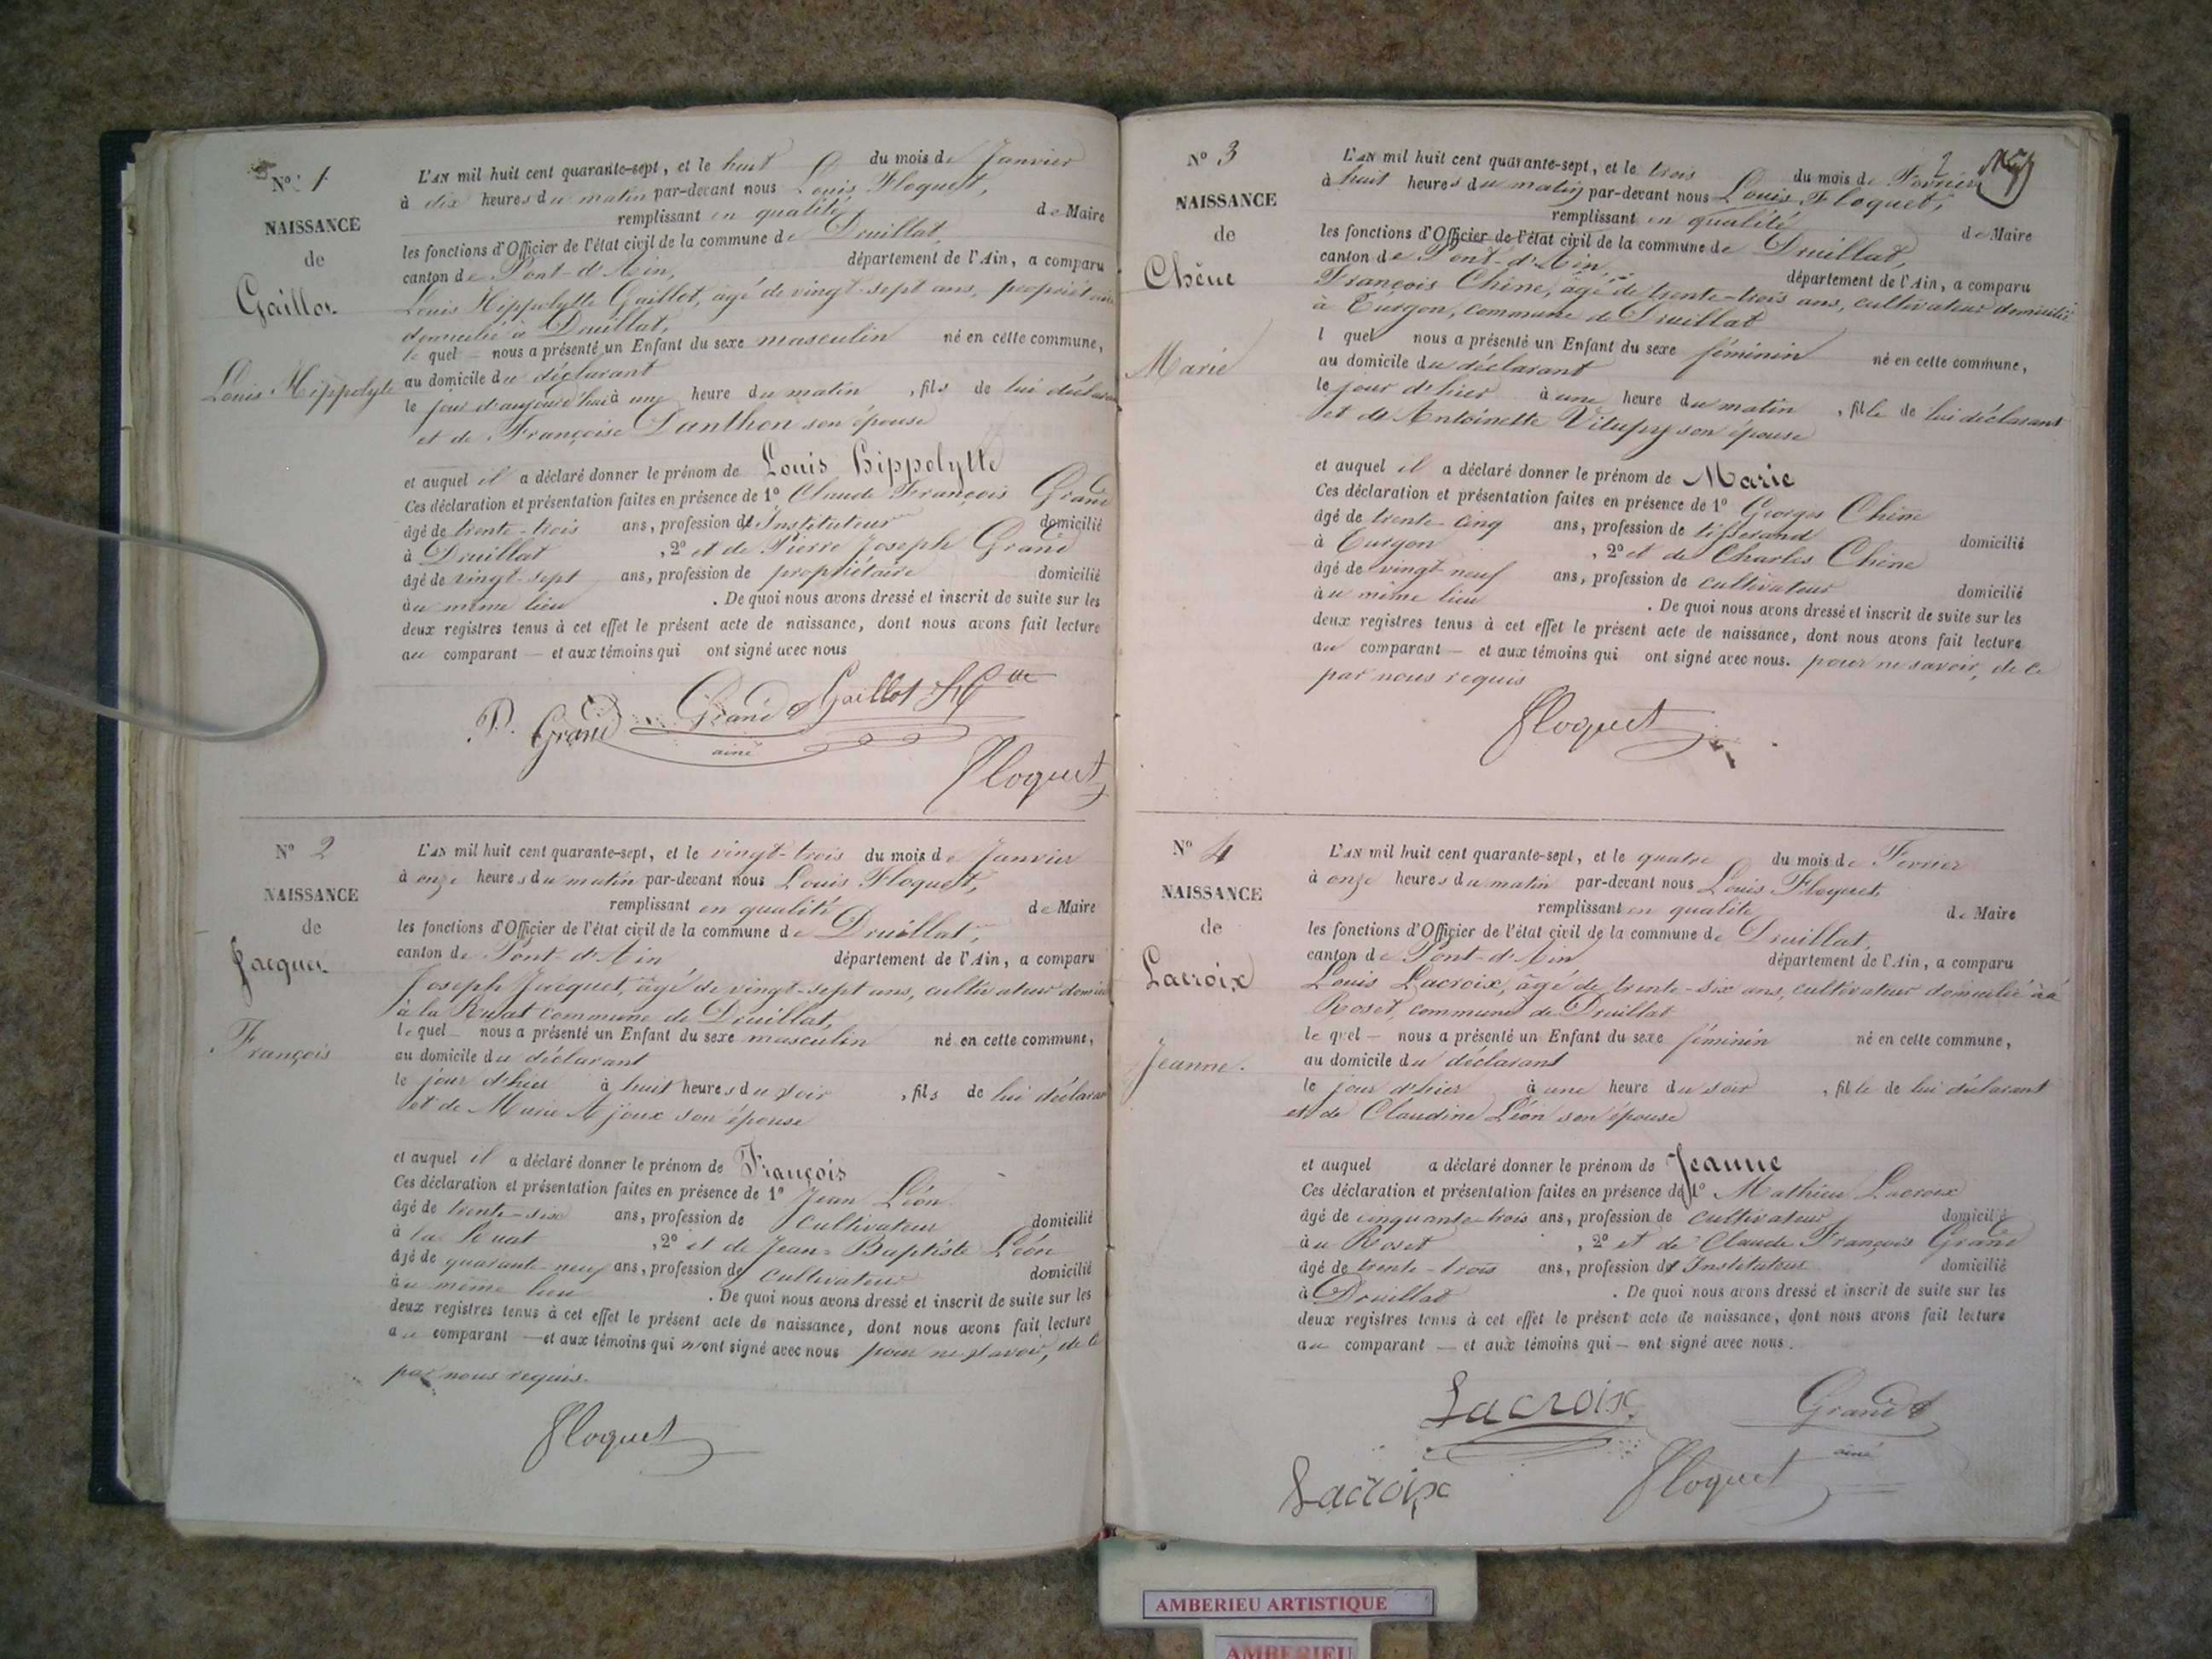 Nº 1
NAISSANCE
de
Gaillot
Louis Hippolyte
L'AN mil huit cent quarante-sept, et le huit du mois de Janvier
à dix heures du matin par-devant nous Louis Floquet,
remplissant en qualité de Maire
les fonctions d'Officier de l'état civil de la commune de Druillat,
canton de Pont-d'Ain, département de l'Ain, a comparu
Louis Hippolytte Gaillot, âgé de vingt-sept ans, propriétaire
domicilié à Druillat,
le quel nous a présenté un Enfant du sexe masculin né en cette commune,
au domicile du déclarant
le jour d'aujourd'hui à une heure du matin, fils de lui déclarant
et de Françoise Danthon son épouse
et auquel il a déclaré donner le prénom de Louis Hippolytte
Ces déclaration et présentation faites en présence de 1º Claude François Grand
âgé de trente-trois ans, profession d'Instituteur domicilié
à Druillat, 2º et de Pierre Joseph Grand
âgé de vingt-sept ans, profession de propriétaire domicilié
au même lieu. De quoi nous avons dressé et inscrit de suite sur les
deux registres tenus à cet effet le présent acte de naissance, dont nous avons fait lecture
au comparant — et aux témoins qui ont signé avec nous
P. Grand Grand Gaillot Hte
ainé
Floquet
Nº 2
NAISSANCE
de
Jacquet
François
L'AN mil huit cent quarante-sept, et le vingt-trois du mois de Janvier
à onze heures du matin par-devant nous Louis Floquet,
remplissant en qualité de Maire
les fonctions d'Officier de l'état civil de la commune de Druillat,
canton de Pont-d'Ain département de l'Ain, a comparu
Joseph Jacquet, âgé de vingt-sept ans, cultivateur domicilié
à la commune de Druillat,
le quel — nous a présenté un Enfant du sexe masculin né en cette commune,
au domicile du déclarant
le jour d'hier à huit heures du soir, fils de lui déclarant
et de Marie Ajoux son épouse
et auquel il a déclaré donner le prénom de François
Ces déclaration et présentation faites en présence de 1º Jean Léon
âgé de trente-six ans, profession de cultivateur domicilié
à la, 2º et de Jean-Baptiste Léon
âgé de quarante-neuf ans, profession de cultivateur domicilié
au même lieu. De quoi nous avons dressé et inscrit de suite sur les
deux registres tenus à cet effet le présent acte de naissance, dont nous avons fait lecture
au comparant — et aux témoins qui n'ont signé avec nous pour ne savoir, de ce
par nous requis.
Floquet
Nº 3
NAISSANCE
de
Chêne
Marie
2
L'AN mil huit cent quarante-sept, et le trois du mois de Février
à huit heures du matin par-devant nous Louis Floquet,
remplissant en qualité de Maire
les fonctions d'Officier de l'état civil de la commune de Druillat,
canton de Pont-d'Ain, département de l'Ain, a comparu
François Chêne, âgé de trente-trois ans, cultivateur domicilié
à Turgon, commune de Druillat
l quel nous a présenté un Enfant du sexe féminin né en cette commune,
au domicile du déclarant
le jour d'hier à une heure du matin, fille de lui déclarant
et de Antoinette son épouse
et auquel il a déclaré donner le prénom de Marie
Ces déclaration et présentation faites en présence de 1º Georges Chêne
âgé de trente-cinq ans, profession de tisserand domicilié
à Turgon, 2º et de Charles Chêne
âgé de vingt-neuf ans, profession de cultivateur domicilié
au même lieu. De quoi nous avons dressé et inscrit de suite sur les
deux registres tenus à cet effet le présent acte de naissance, dont nous avons fait lecture
au comparant — et aux témoins qui ont signé avec nous. pour ne savoir, de ce
par nous requis
Floquet
Nº 4
NAISSANCE
de
Lacroix
Jeanne.
L'AN mil huit cent quarante-sept, et le quatre du mois de Fevrier
à onze heures du matin par-devant nous Louis Floquet,
remplissant en qualité de Maire
les fonctions d'Officier de l'état civil de la commune de Druillat,
canton de Pont-d'Ain département de l'Ain, a comparu
Louis Lacroix, âgé de trente-six ans, cultivateur domicilié à
Roset, commune de Druillat
le quel — nous a présenté un Enfant du sexe féminin né en cette commune,
au domicile du déclarant
le jour d'hier à une heure du soir, fille de lui déclarant
et de Claudine Léon son épouse
et auquel a déclaré donner le prénom de Jeanne
Ces déclaration et présentation faites en présence de 1º Mathieu Lacroix
âgé de cinquante-trois ans, profession de cultivateur domicilié
au Roset, 2º et de Claude François Grand
âgé de trente-trois ans, profession d'Instituteur domicilié
à Druillat. De quoi nous avons dressé et inscrit de suite sur les
deux registres tenus à cet effet le présent acte de naissance, dont nous avons fait lecture
au comparant — et aux témoins qui — ont signé avec nous.
Lacroix Grand
ainé
Lacroix Floquet
AMBERIEU ARTISTIQUE
AMBERIEU